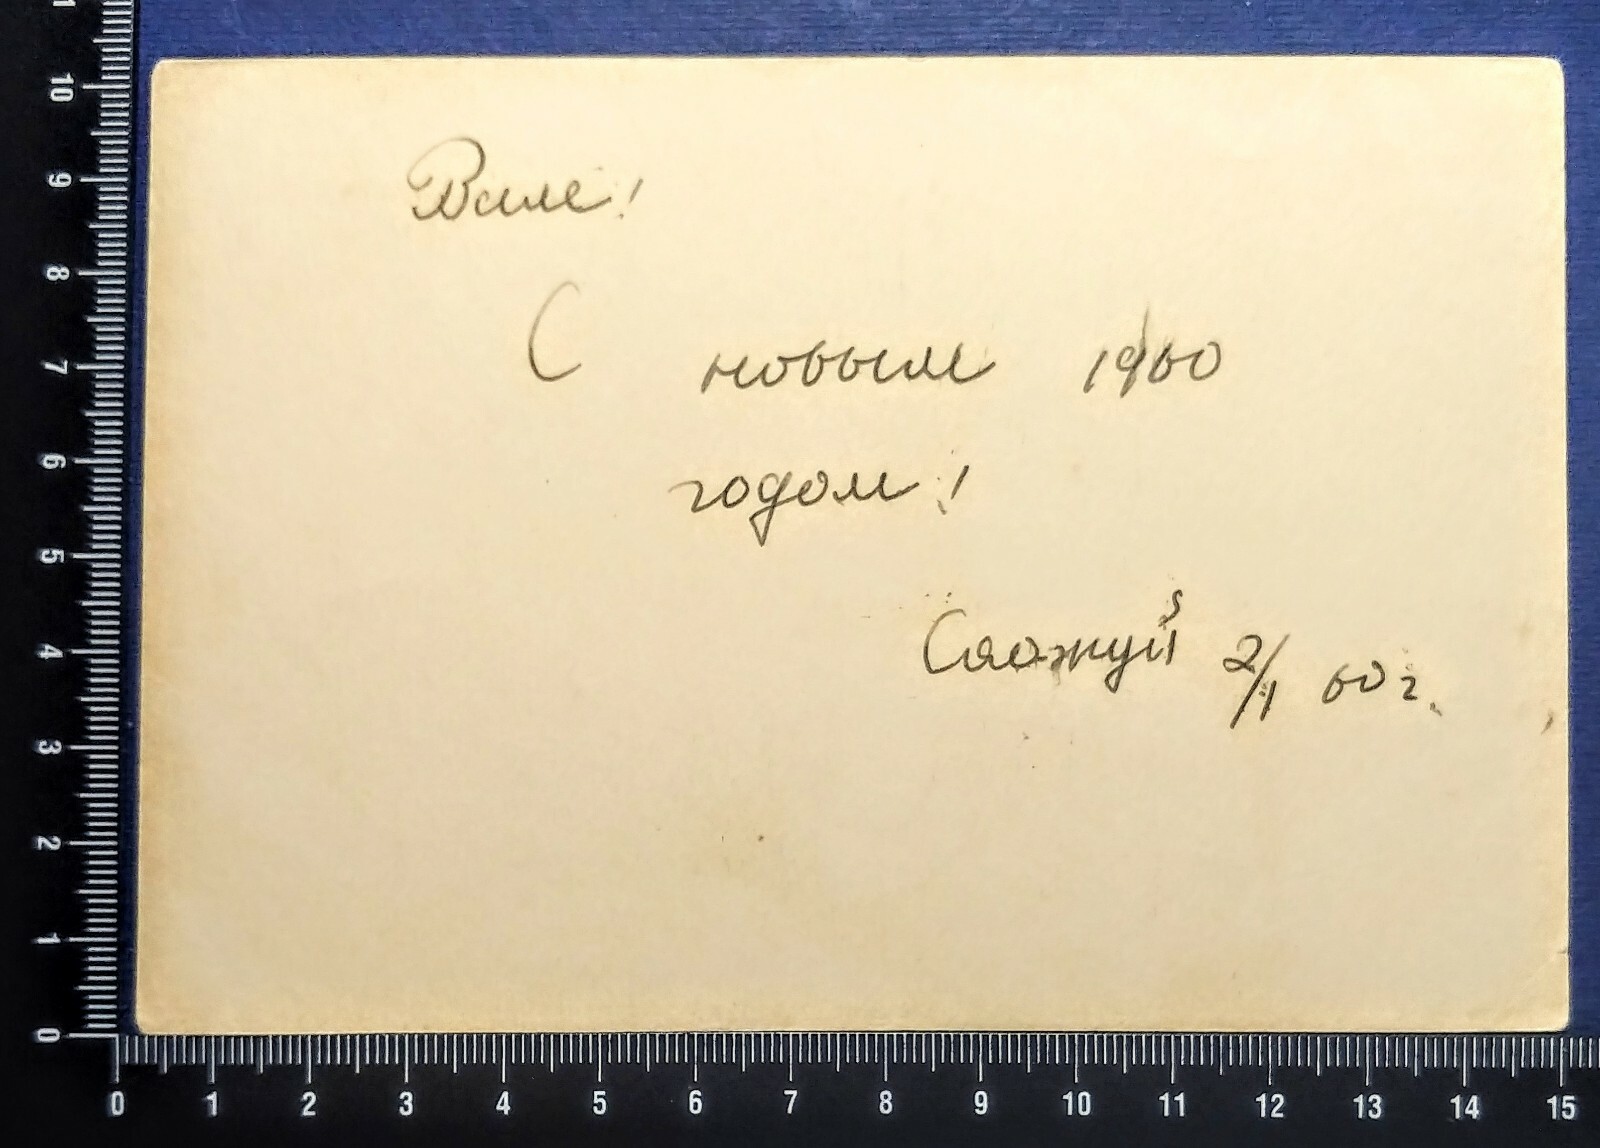 Вале!
С новым 1960
годом!
Сяожуй 2/I 60 г.
11
10
9
8
7
6
5
4
3
2
1
0
0 1 2 3 4 5 6 7 8 9 10 11 12 13 14 15